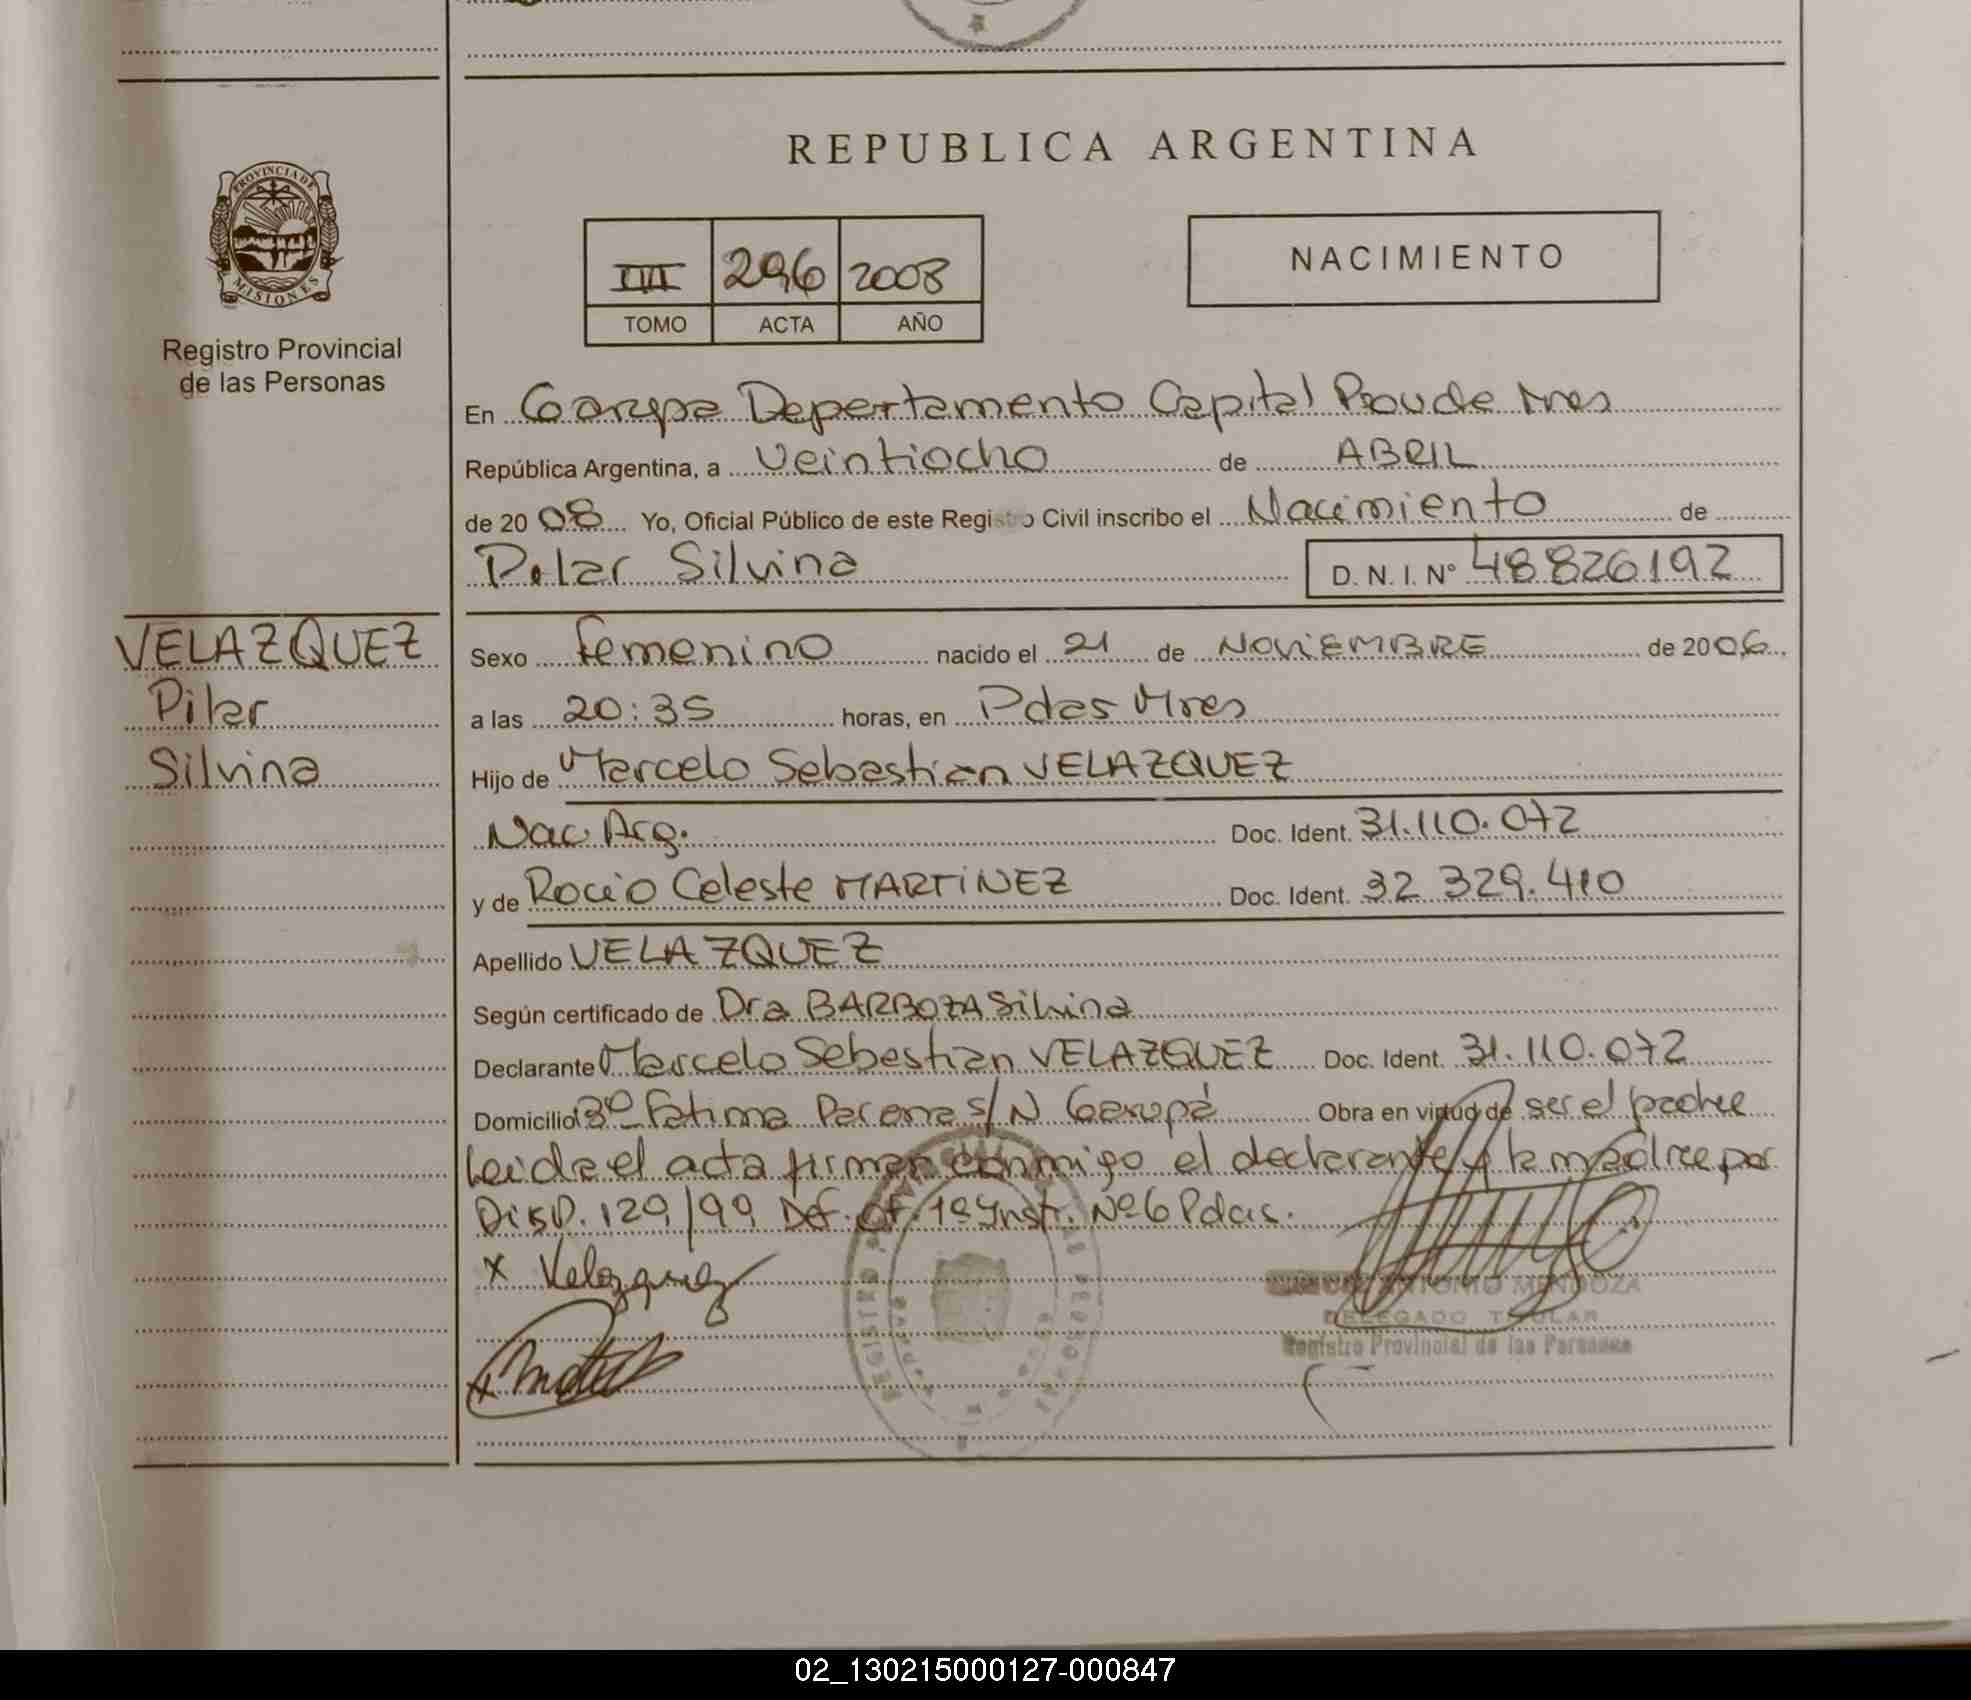 REPUBLICA ARGENTINA
PROVINCIA DE
MISIONES
Registro Provincial
de las Personas
III 296 2008
TOMO ACTA AÑO
NACIMIENTO
En Garupa Departamento Capital Prov de Mnes
República Argentina, a veintiocho de ABRIL
de 20 08 Yo, Oficial Público de este Registro Civil inscribo el Nacimiento de
Pilar Silvina D.N.I. Nº 48826192
VELAZQUEZ
Pilar
Silvina
Sexo Femenino nacido el 21 de NOViEMBRE de 2006
a las 20:35 horas, en Pdas Mnes
Hijo de Marcelo Sebastian VELAZQUEZ
Nac. Arg. Doc. Ident. 31.110.072
y de Rocio Celeste MARTiNEZ Doc. Ident. 32 329.410
Apellido VELAZQUEZ
Según certificado de Dra BARBOZA Silvina
Declarante Marcelo Sebastian VELAZQUEZ Doc. Ident. 31.110.072
Domicilio Bº Fatima Parcena S/N Garupá Obra en virtud de ser el padre
Leida el acta firman conmigo el declarante y la madre por
DISP. 129/99 Def. Of. 1ª Inst. Nº 6 Pdas.
x Velazquez
ANTONIO MENDOZA
DELEGADO TITULAR
Registro Provincial de las Personas
02_130215000127-000847